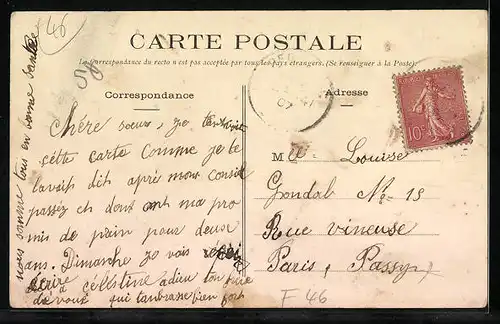 46
CARTE POSTALE
La Correspondance du recto n'est pas acceptée par tous les pays étrangers. (Se renseigner à la Poste).
56
Correspondance
Adresse
10c
Chère soeur, je
cette carte Comme je te
lavais dit après mon Conseil
passez et dont ont ma pro
mis de pain pour deuse
ans. Dimanche je vais
écrire a célestine adieu ton frère
de vous qui tanbrasse bien fort
nous somme tous en bonne santée
Mlle Louise
Gondal No 15
Rue vineuse
Paris, Passy
F 46